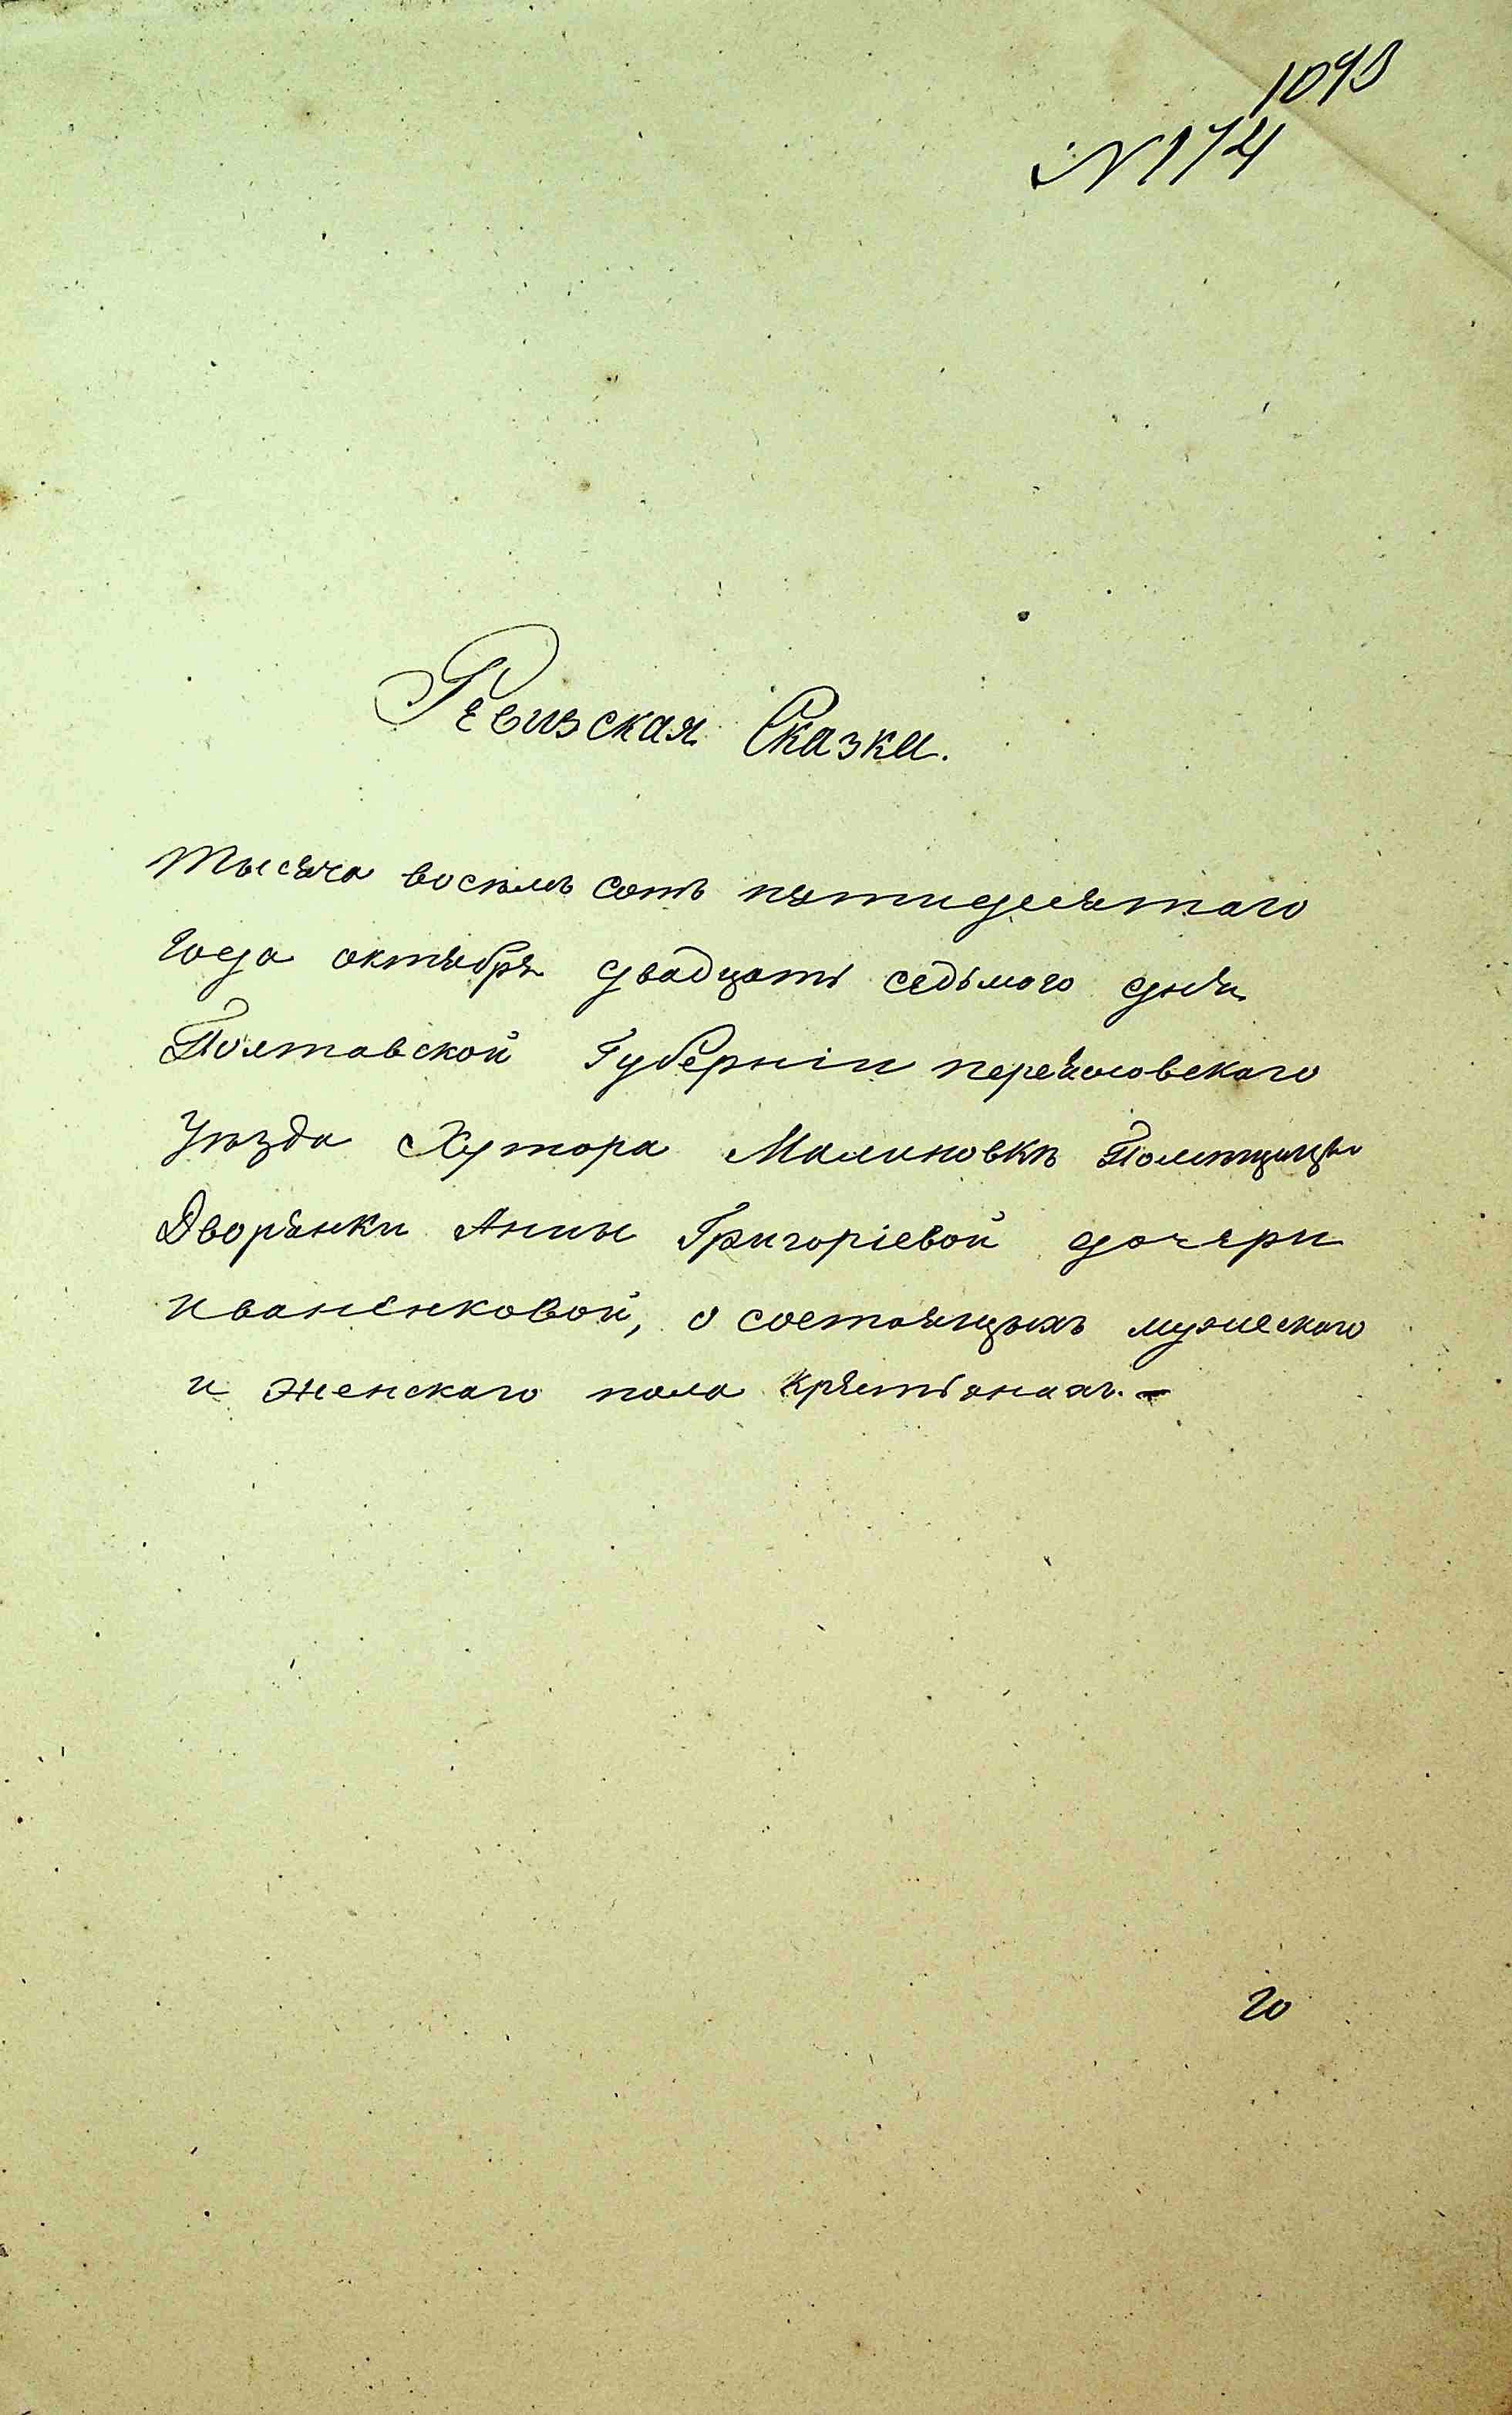 1093
№ 174
Ревизская Сказка.
Тысяча восемь сотъ пятидесятаго
года октября двадцать седьмого дня
Полтавской Губерніи переяловскаго
Уѣзда Хутора Малиновкѣ Помѣщицы
Дворянки Анны Григоріевой дочери
иваненковой, о состоящихъ мужескаго
и женскаго пола крестьянахъ. –
20